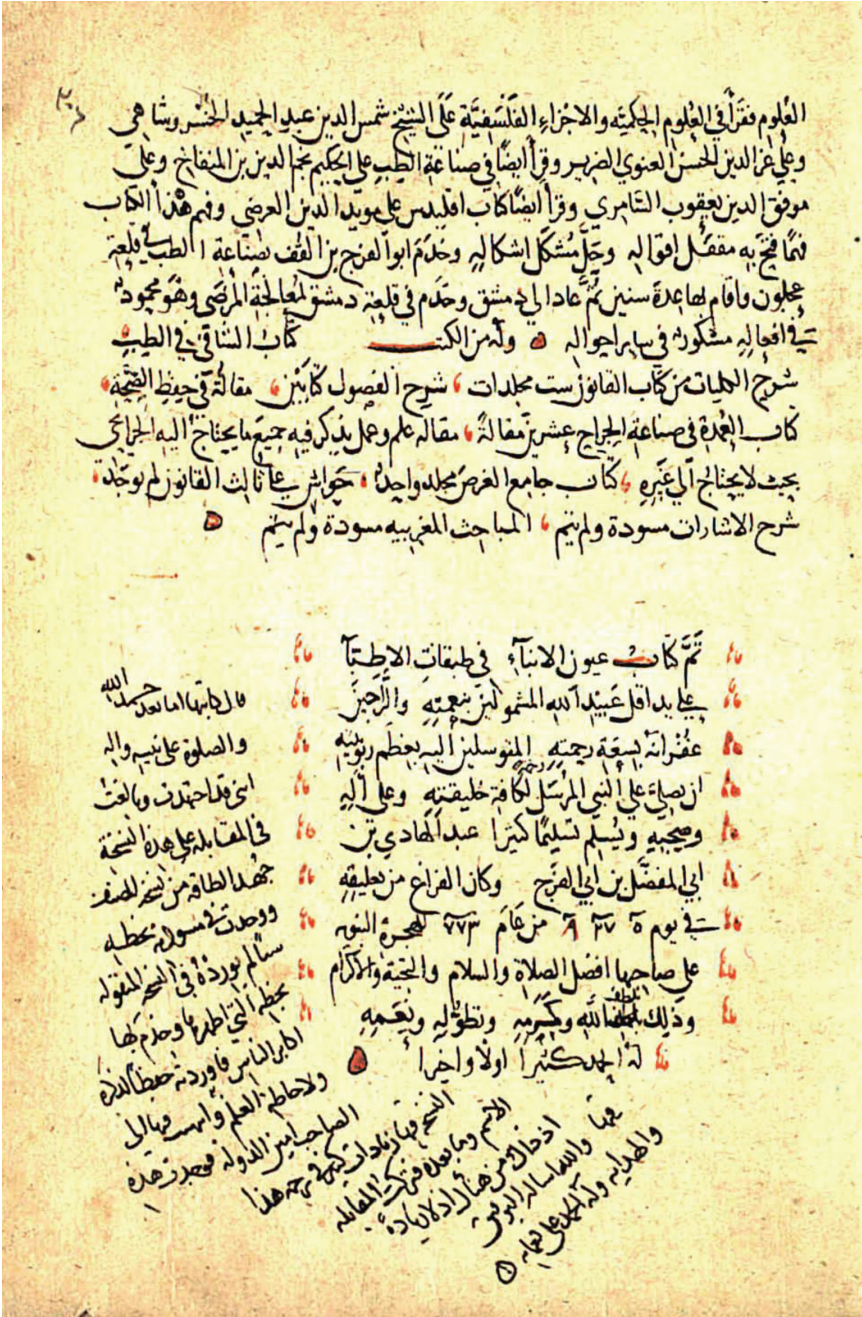 العُلوم فقرَأ في العُلوم الحكميّه والاجزاءِ الفَلْسَفيَّةِ عَلَى الشيْخ شمس الدين عبد الحميد الخُسروشاهي
وعلي عز الدين الحسن الغنوي الضرير وقرأ ايضًا في صناعة الطب على الحكيم نجم الدين بن المنفاخ وعلى
موفق الدين يعقوب السَّامري وقرأ ايضًا كتاب اقليدس على مويد الدين العرضي وفهم هذا الكتاب
فهمًا فتح به مقفَل اقواله وحَلَّ مُشكل اشكاله وخَدَم ابو الفرج بن القُف بصناعة الطب في قلعة
عجلون واقام بها عدة سنين ثُمَّ عاد الي دمشق وخدَم في قلعة دمشق لمُعالجةِ المرضَى وهُوَ محمود
في افعالِهِ مشكور في ساير احواله وله من الكتب كتاب الشافي في الطب
شرح الكليات من كتاب القانون ست مجلدات شرح الفصول كتابين مقالة في حفظ الصحّة
كتاب العُمدة في صناعة الجراح عشرين مقالةً مقاله علم وعمل يذكر فيه جميع ما يحتاج اليه الجرايحى
بحيث لا يحتاج الي غَيره كتاب جامع الغرض مجلد واحد حَواش على ثالث القانون لم توجَد
شرح الاشارات مسودة ولم يتم المباحث المغربيه مسودة ولم يتم
تَمَّ كتاب عيون الانبآءِ في طبقاتِ الاطبآ
علي يد اقل عَبيْد الله المشمولين بنعمتِهِ والراجين
غفرانه بسِعَة رحمتِهِ المتوسلين اليه بعظم ربوبيته
ان يصلي علي النبي المرسل لكافة خليقتهِ وعلى آلهِ
وصحبهِ ويُسلم تسليمًا كثيرًا عبد الهادي بن
ابي المفضَّل بن ابي الفرَج وكان الفراغ من تعليقهِ
في يوم من عَامَ ٧٧٣ للهجرة النبويه
على صاحبها افضل الصلاة والسلام والتحية والاكرام
وذَلِكَ بلطف الله وكَرَمِهِ وتطوُّلِهِ ونِعَمِهِ
له الحمد كثيرًا اولًا واخرًا
قال كاتبها اما بعد حمد الله
والصلوة على نبيه واله
انى قد اجتهدت وبالغت
في المقابله على هذه النسخة
جهد الطاقه من نسخة المصنف
ووجدت في مسوداته بخطه
ما لم يورده في النسخه المنقوله
بخطه التي اظهرها وخدم بها
اكابر الناس فاوردته حفظًا لذكره
العلم
الصاحب امين الدوله فوجدت هذه
النسخه فيها زيادات كثيره في ترجمه هذا
الاسم وما بعده المقابله
اذ ذاك من هنا
والله اساله التوفيق
والهدايه وله الحمد على نعمايه